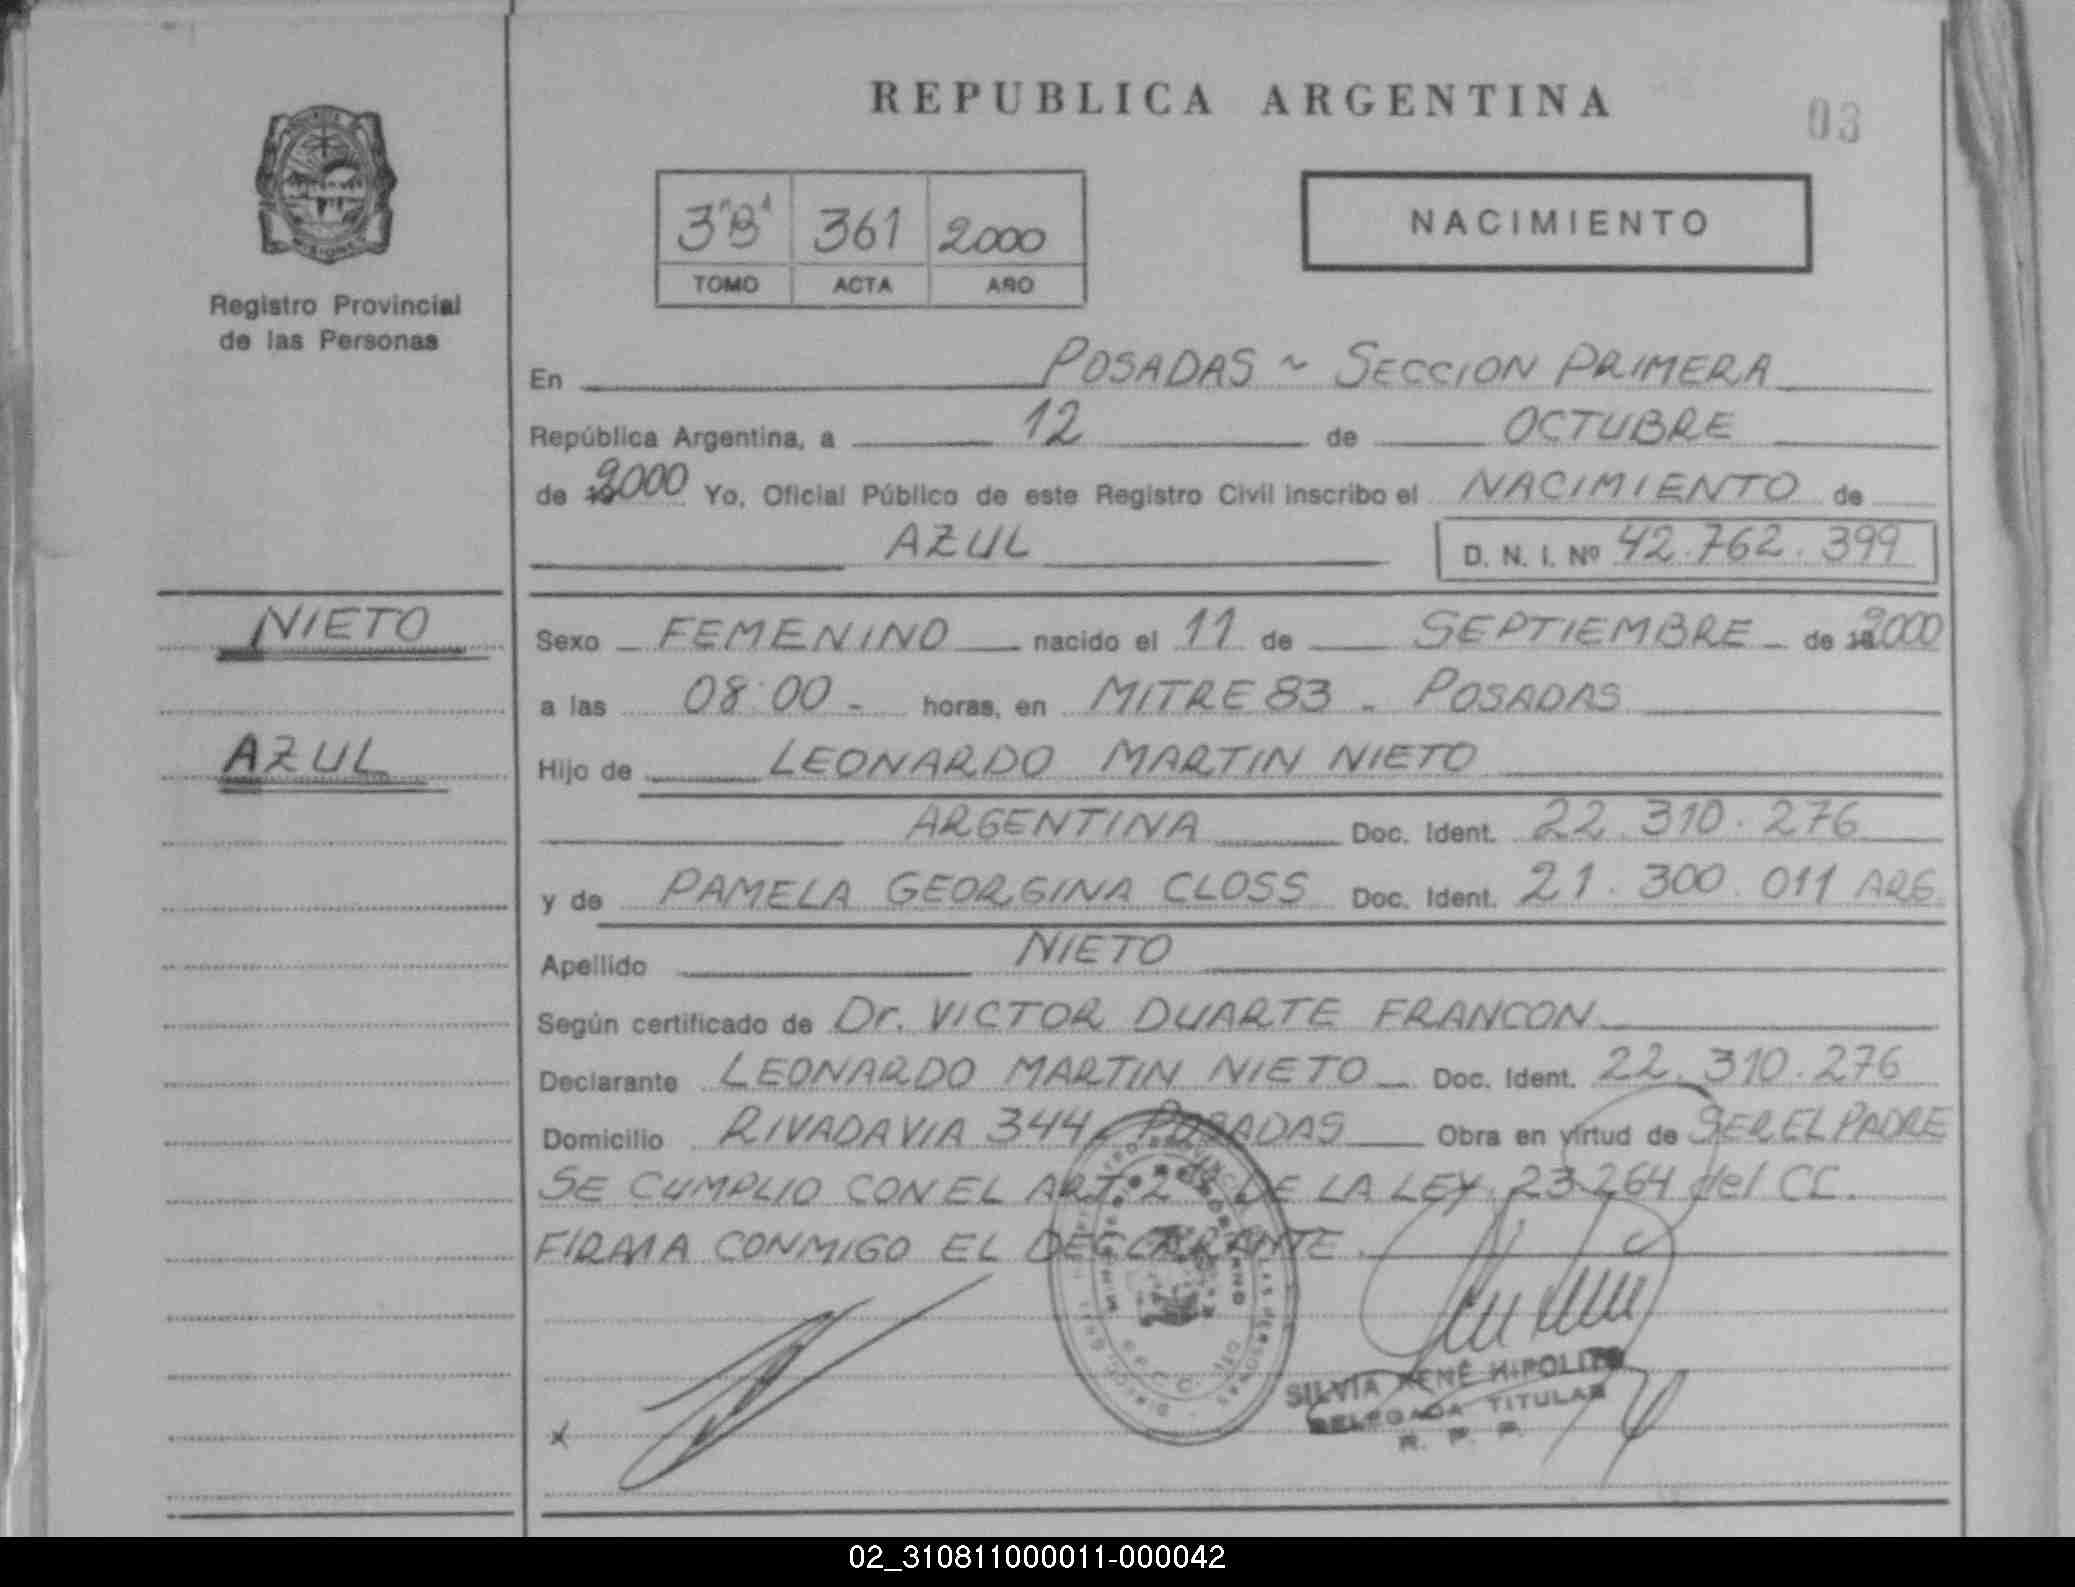 REPUBLICA ARGENTINA
03
3"B" 361 2000
TOMO ACTA AÑO
NACIMIENTO
Registro Provincial
de las Personas
En POSADAS ~ SECCION PRIMERA
República Argentina, a 12 de OCTUBRE
de 2000 Yo, Oficial Público de este Registro Civil inscribo el NACIMIENTO de
AZUL D. N. I. Nº 42.762.399
NIETO
AZUL
Sexo FEMENINO nacido el 11 de SEPTIEMBRE de 2000
a las 08:00 - horas, en MITRE 83 - POSADAS
Hijo de LEONARDO MARTIN NIETO
ARGENTINA Doc. Ident. 22.310.276
y de PAMELA GEORGINA CLOSS Doc. Ident. 21.300.011 ARG.
Apellido NIETO
Según certificado de Dr. VICTOR DUARTE FRANCON
Declarante LEONARDO MARTIN NIETO Doc. Ident. 22.310.276
Domicilio RIVADAVIA 344, POSADAS Obra en virtud de SER EL PADRE
SE CUMPLIO CON EL ART. DE LA LEY 23264 del CC.
FIRMA CONMIGO EL DECLARANTE.
x
SILVIA RENÉ HIPOLITO
DELEGADA TITULAR
R. P. P.
02_310811000011-000042